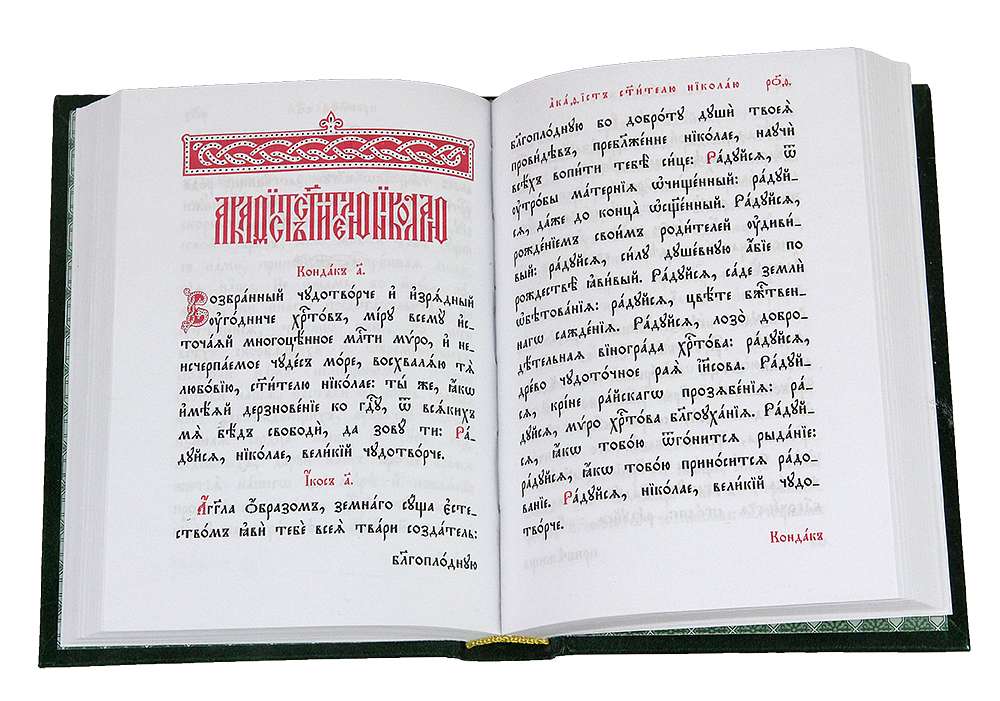 А҆ка́ѳїстъ ст҃и́телю нїкола́ю
Конда́къ а҃.
Возбра́нный чꙋдотво́рче и҆ и҆зрѧ́дный
ᲂу҆го́дниче хрⷭ҇то́въ, мі́рꙋ всемꙋ̀ и҆с-
точа́ѧй многоцѣ́нное млⷭ҇ти мѵ́ро, и҆ не-
исчерпа́емое чꙋде́съ мо́ре, восхвалѧ́ю тѧ̀
любо́вїю, ст҃и́телю нїко́лае: ты́ же, ꙗ҆́кѡ
и҆мѣ́ѧй дерзнове́нїе ко гдⷭ҇ꙋ, ѿ всѧ́кихъ
мѧ̀ бѣ́дъ свободѝ, да зовꙋ́ ти: Ра́-
дꙋйсѧ, нїко́лае, вели́кїй чꙋдотво́рче.
І҆́косъ а҃.
А҆́гг҃ла ѻ҆́бразомъ, земна́го сꙋ́ща є҆сте-
ство́мъ ꙗ҆вѝ тебѐ всеѧ̀ тва́ри созда́тель:
бл҃гопло́днꙋю
а҆ка́ѳїстъ ст҃и́телю нїкола́ю роѳ҃.
бл҃гопло́днꙋю бо добро́тꙋ дꙋшѝ твоеѧ̀
прови́дѣвъ, пребл҃же́нне нїко́лае, наꙋчѝ
всѣ́хъ вопи́ти тебѣ̀ си́це: Ра́дꙋйсѧ, ѿ
ᲂу҆тро́бы ма́тернїѧ ѡ҆чище́нный: ра́дꙋй-
сѧ, да́же до конца̀ ѡ҆сщ҃е́нный. Ра́дꙋйсѧ,
рожде́нїемъ свои́мъ роди́телей ᲂу҆диви́-
вый: ра́дꙋйсѧ, си́лꙋ дꙋше́внꙋю а҆́бїе по
рождествѣ̀ ꙗ҆ви́вый. Ра́дꙋйсѧ, са́де землѝ
ѡ҆бѣтова́нїѧ: ра́дꙋйсѧ, цвѣ́те бж҃твен-
нагѡ сажде́нїѧ. Ра́дꙋйсѧ, лозо̀ добро-
дѣ́тельнаѧ вїногра́да хрⷭ҇то́ва: ра́дꙋйсѧ,
дре́во чꙋдото́чное раѧ̀ і҆и҃сова. Ра́дꙋй-
сѧ, крі́не ра́йскагѡ прозѧбе́нїѧ: ра́-
дꙋйсѧ, мѵ́ро хрⷭ҇то́ва бл҃гоꙋха́нїѧ. Ра́дꙋй-
сѧ, ꙗ҆́кѡ тобо́ю ѿго́нитсѧ рыда́нїе:
ра́дꙋйсѧ, ꙗ҆́кѡ тобо́ю прино́ситсѧ ра́до-
ванїе. Ра́дꙋйсѧ, нїко́лае, вели́кїй чꙋдо-
тво́рче.
Конда́къ